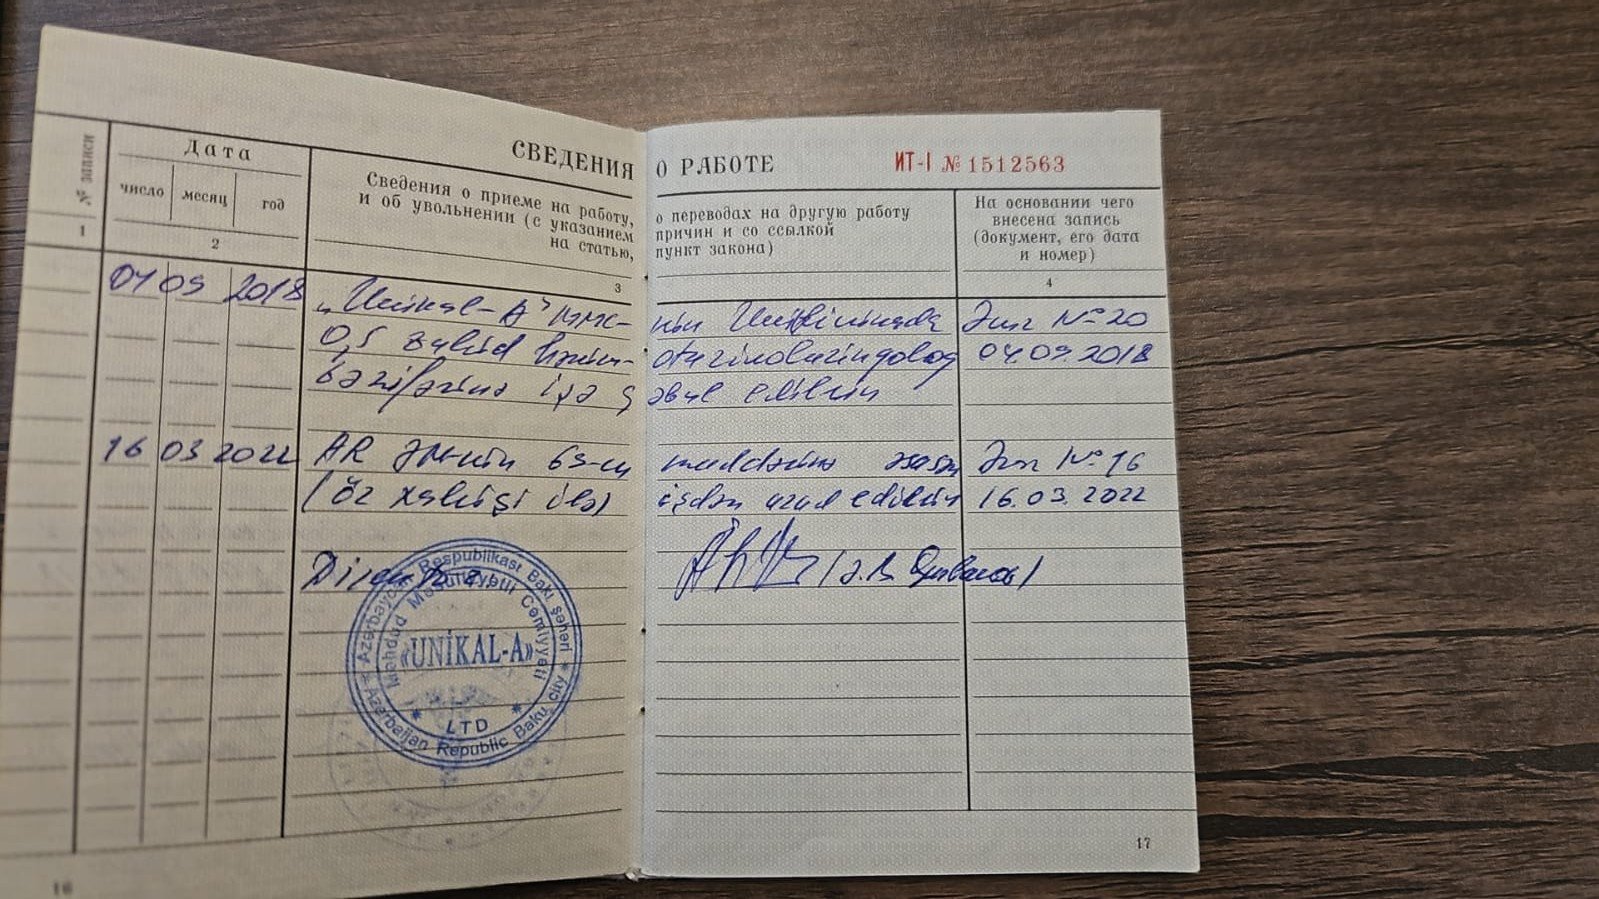 СВЕДЕНИЯ О РАБОТЕ ИТ-I № 1512563
№ записи
Дата
число месяц год
Сведения о приеме на работу, о переводах на другую работу
и об увольнении (с указанием причин и со ссылкой
на статью, пункт закона)
На основании чего
внесена запись
(документ, его дата
и номер)
1 2 3 4
04 09 2018 „Unikal-A" MMC-nin Əmr № 20
0,5 otorinolarinqoloq 04.09.2018
vəzifəsinə işə qəbul edilsin
16 03 2022 AR ƏM-nin 69-cu maddəsinə əsasən Əmr № 16
(öz xahişi ilə) işdən azad edilsin 16.03.2022
Direktor
Azərbaycan Respublikası Bakı şəhəri
Məhdud Məsuliyyətli Cəmiyyəti
«UNİKAL-A»
LTD
Azerbaijan Republic Baku city
16
17